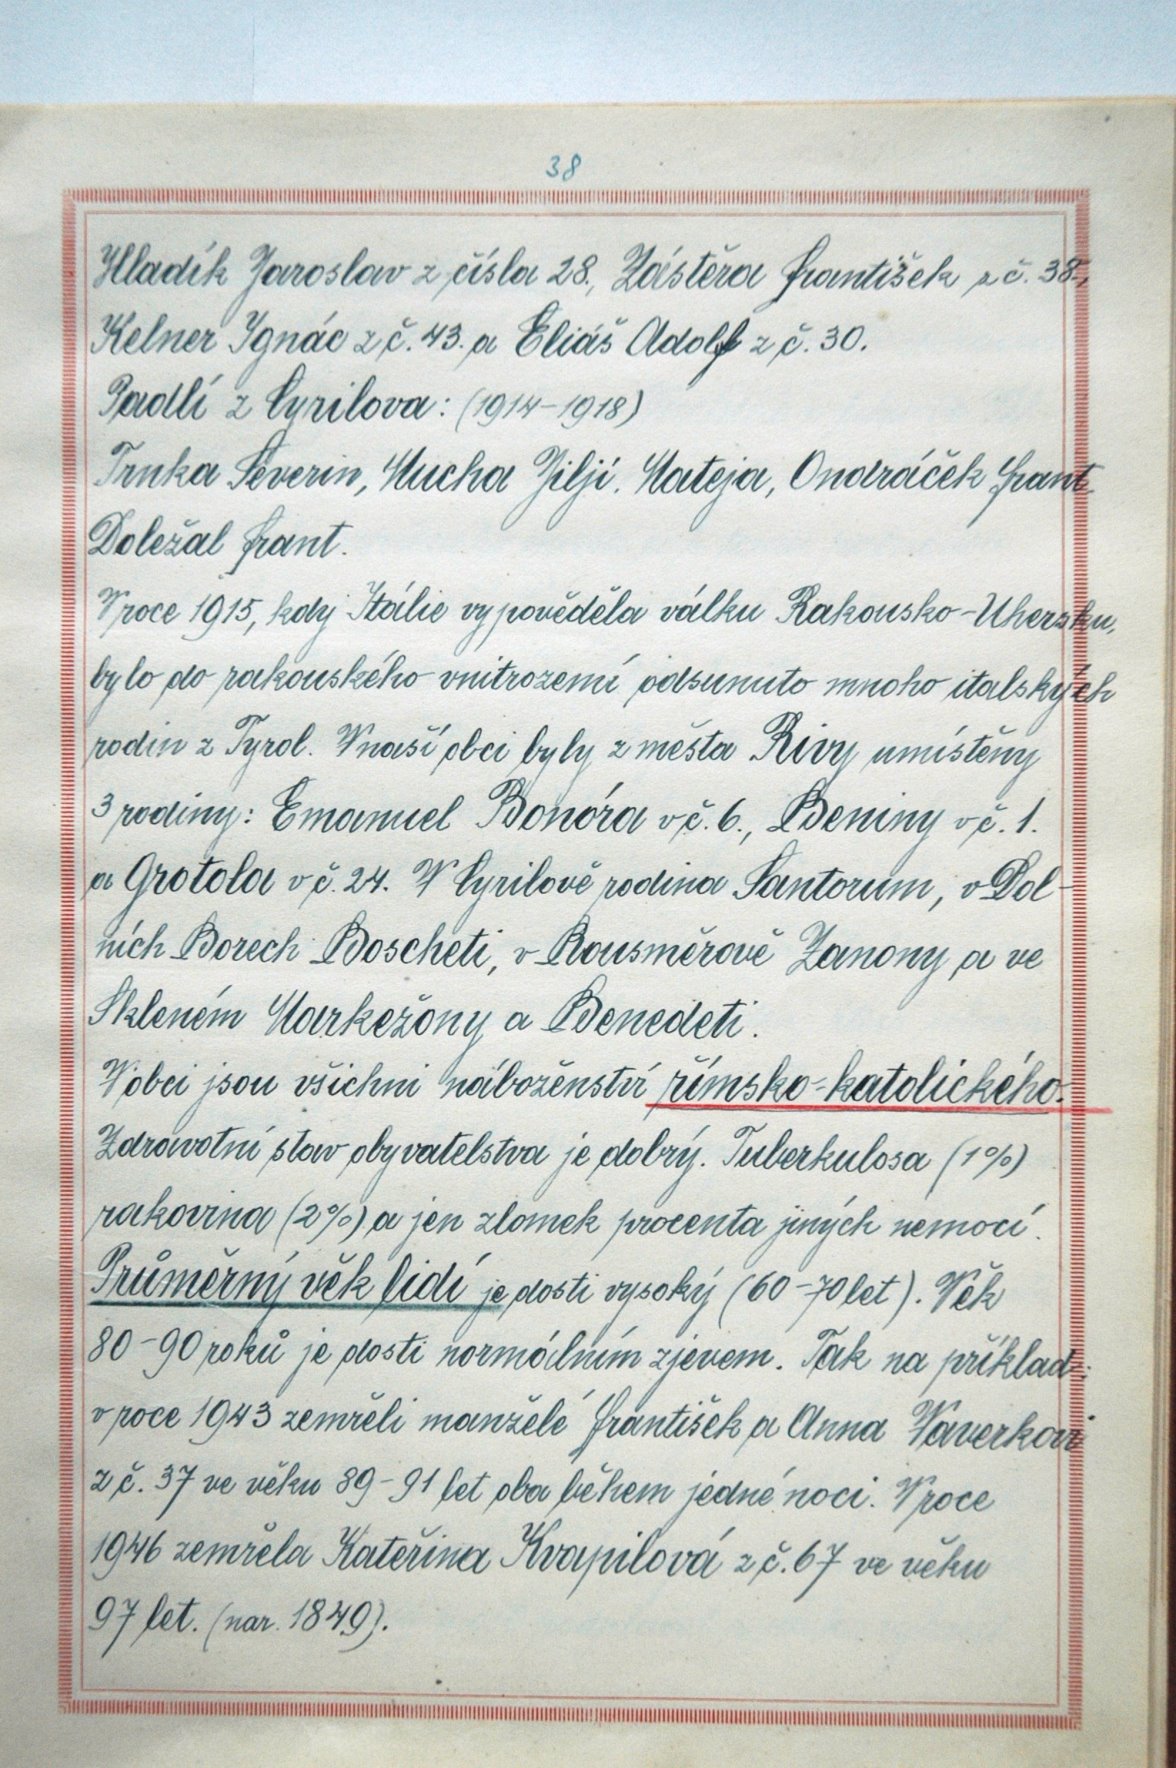 38
Hladík Jaroslav z čísla 28., Zástěra František z č. 38.,
Kelner Ignác z č. 43. a Eliáš Adolf z č. 30.
Padlí z Cyrilova: (1914-1918)
Trnka Severin, Mucha Jiljí. Mateja, Ondráček Frant.
Doležal Frant.
V roce 1915, kdy Itálie vypověděla válku Rakousko-Uhersku,
bylo do rakouského vnitrozemí odsunuto mnoho italských
rodin z Tyrol. V naší obci byly z města Rivy umístěny
3 rodiny: Emanuel Bonóra v č. 6., Beniny v č. 1.
a Grotola v č. 24. V Cyrilově rodina Santorum, v Dol-
ních Borech Boscheti, v Rousměrově Zanony a ve
Skleném Markežony a Benedeti.
V obci jsou všichni náboženství římsko-katolického.
Zdravotní stav obyvatelstva je dobrý. Tuberkulosa (1%)
rakovina (2%) a jen zlomek procenta jiných nemocí.
Průměrný věk lidí je dosti vysoký (60-70 let). Věk
80-90 roků je dosti normálním zjevem. Tak na příklad:
v roce 1943 zemřeli manželé František a Anna Vaverkovi
z č. 37 ve věku 89-91 let oba během jedné noci. V roce
1946 zemřela Kateřina Kvapilová z č. 67 ve věku
97 let. (nar. 1849).